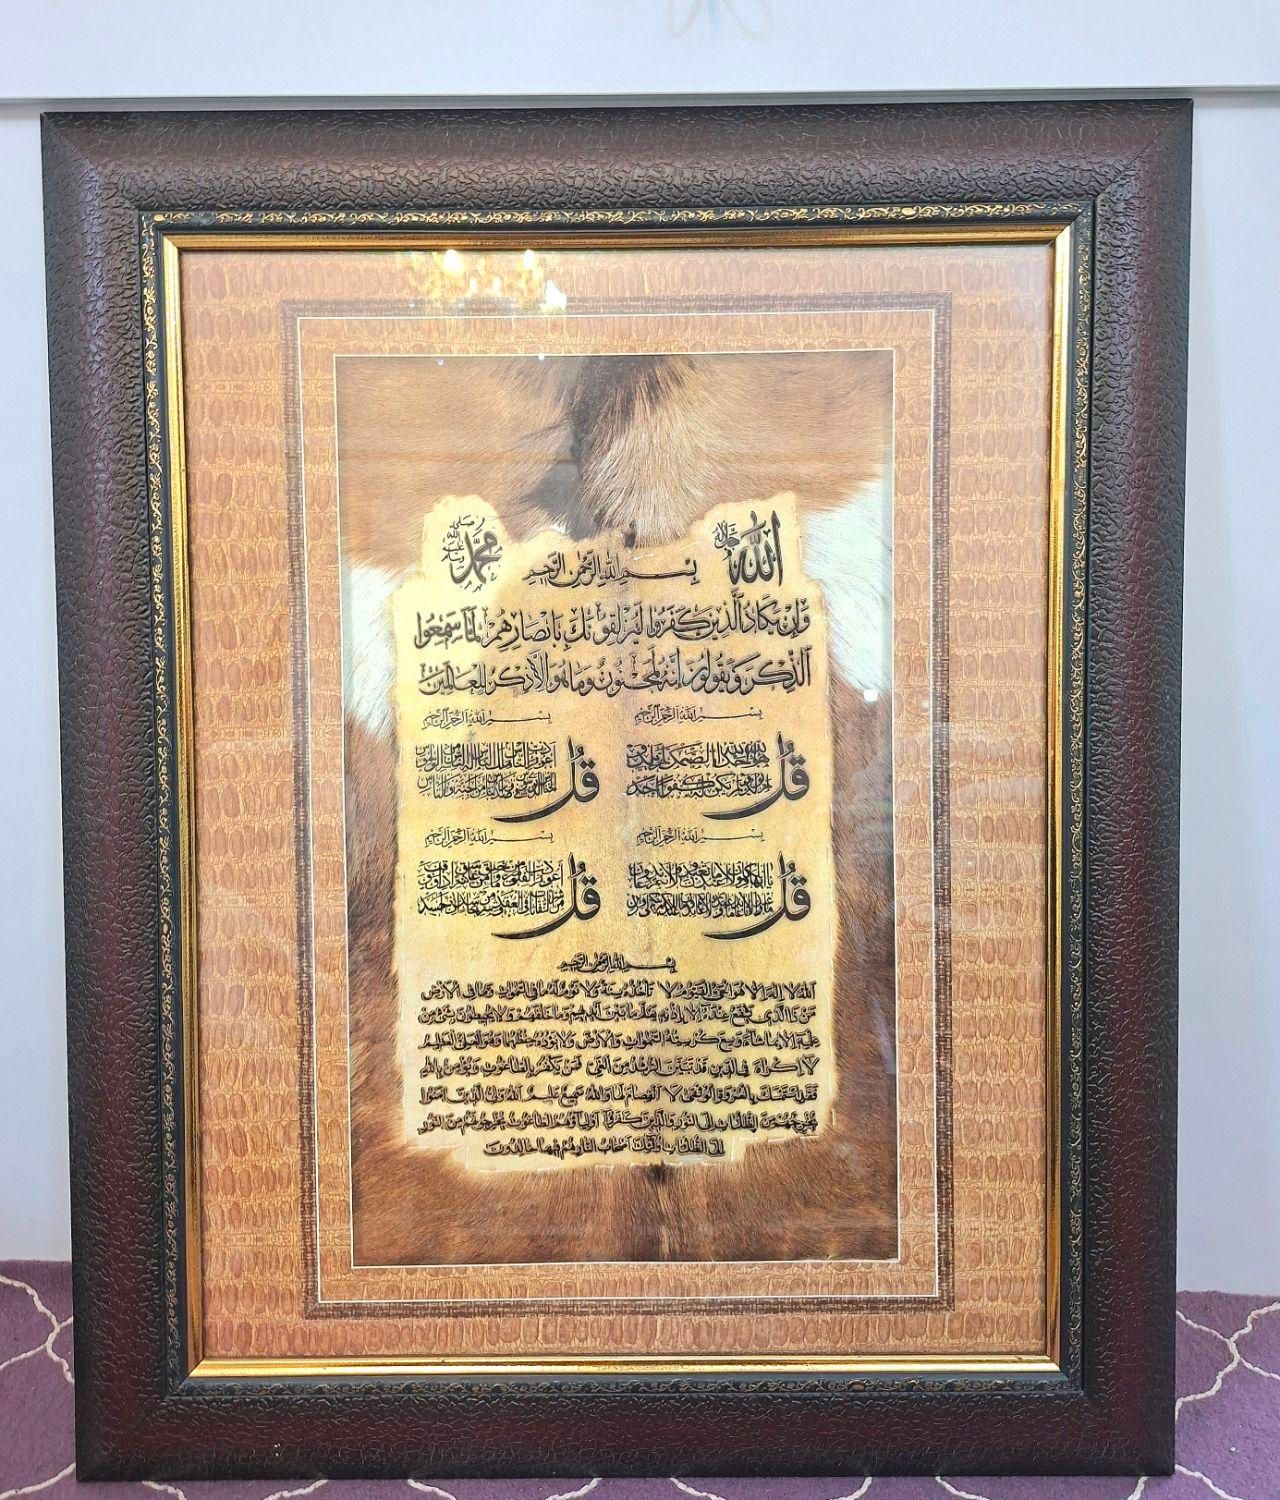 الله جل جلاله
محمد صلى الله عليه وسلم
بسم الله الرحمن الرحيم
وَإِنْ يَكَادُ الَّذِينَ كَفَرُوا لَيُزْلِقُونَكَ بِأَبْصَارِهِمْ لَمَّا سَمِعُوا
الذِّكْرَ وَيَقُولُونَ إِنَّهُ لَمَجْنُونٌ وَمَا هُوَ إِلَّا ذِكْرٌ لِلْعَالَمِينَ
بسم الله الرحمن الرحيم
قل هو الله احد الله الصمد لم يلد و
لم يولد ولم يكن له كفوا احد
بسم الله الرحمن الرحيم
قل اعوذ برب الناس ملك الناس اله الناس من شر الوسواس
الخناس الذى يوسوس فى صدور الناس من الجنة والناس
بسم الله الرحمن الرحيم
قل يا ايها الكافرون لا اعبد ما تعبدون ولا انتم عابدون
ما اعبد ولا انا عابد ما عبدتم ولا انتم عابدون ما اعبد لكم دينكم ولى دين
بسم الله الرحمن الرحيم
قل اعوذ برب الفلق من شر ما خلق ومن شر غاسق اذا وقب
ومن شر النفاثات فى العقد ومن شر حاسد اذا حسد
بسم الله الرحمن الرحيم
الله لا اله الا هو الحى القيوم لا تأخذه سنة ولا نوم له ما فى السموات وما فى الارض
من ذا الذى يشفع عنده الا باذنه يعلم ما بين ايديهم وما خلفهم ولا يحيطون بشىء من
علمه الا بما شاء وسع كرسيه السموات والارض ولا يؤده حفظهما وهو العلى العظيم
لا اكراه فى الدين قد تبين الرشد من الغى فمن يكفر بالطاغوت ويؤمن بالله
فقد استمسك بالعروة الوثقى لا انفصام لها والله سميع عليم الله ولى الذين امنوا
يخرجهم من الظلمات الى النور والذين كفروا اولياؤهم الطاغوت يخرجونهم من النور
الى الظلمات اولئك اصحاب النار هم فيها خالدون